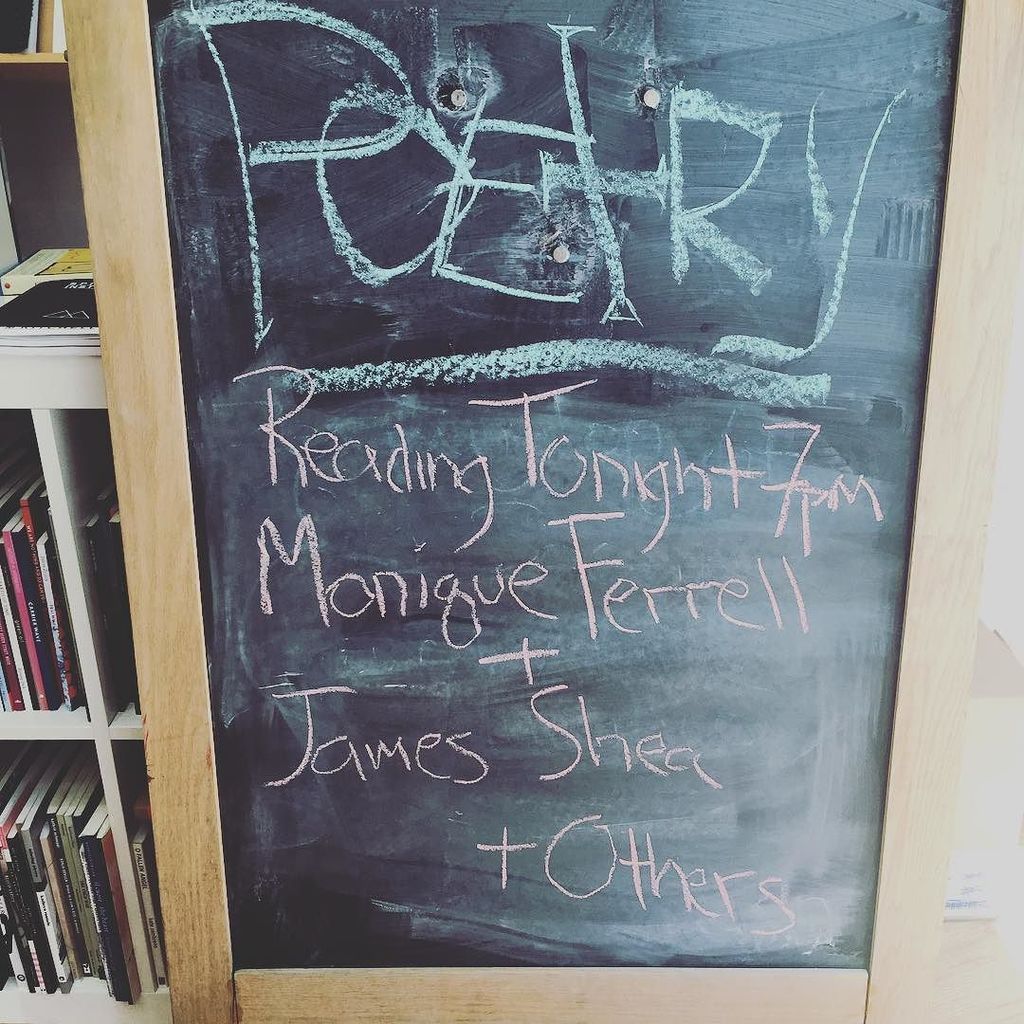 POETRY
Reading Tonight 7pm
Monique Ferrell
+
James Shea
+ Others
CARRIER WAVE